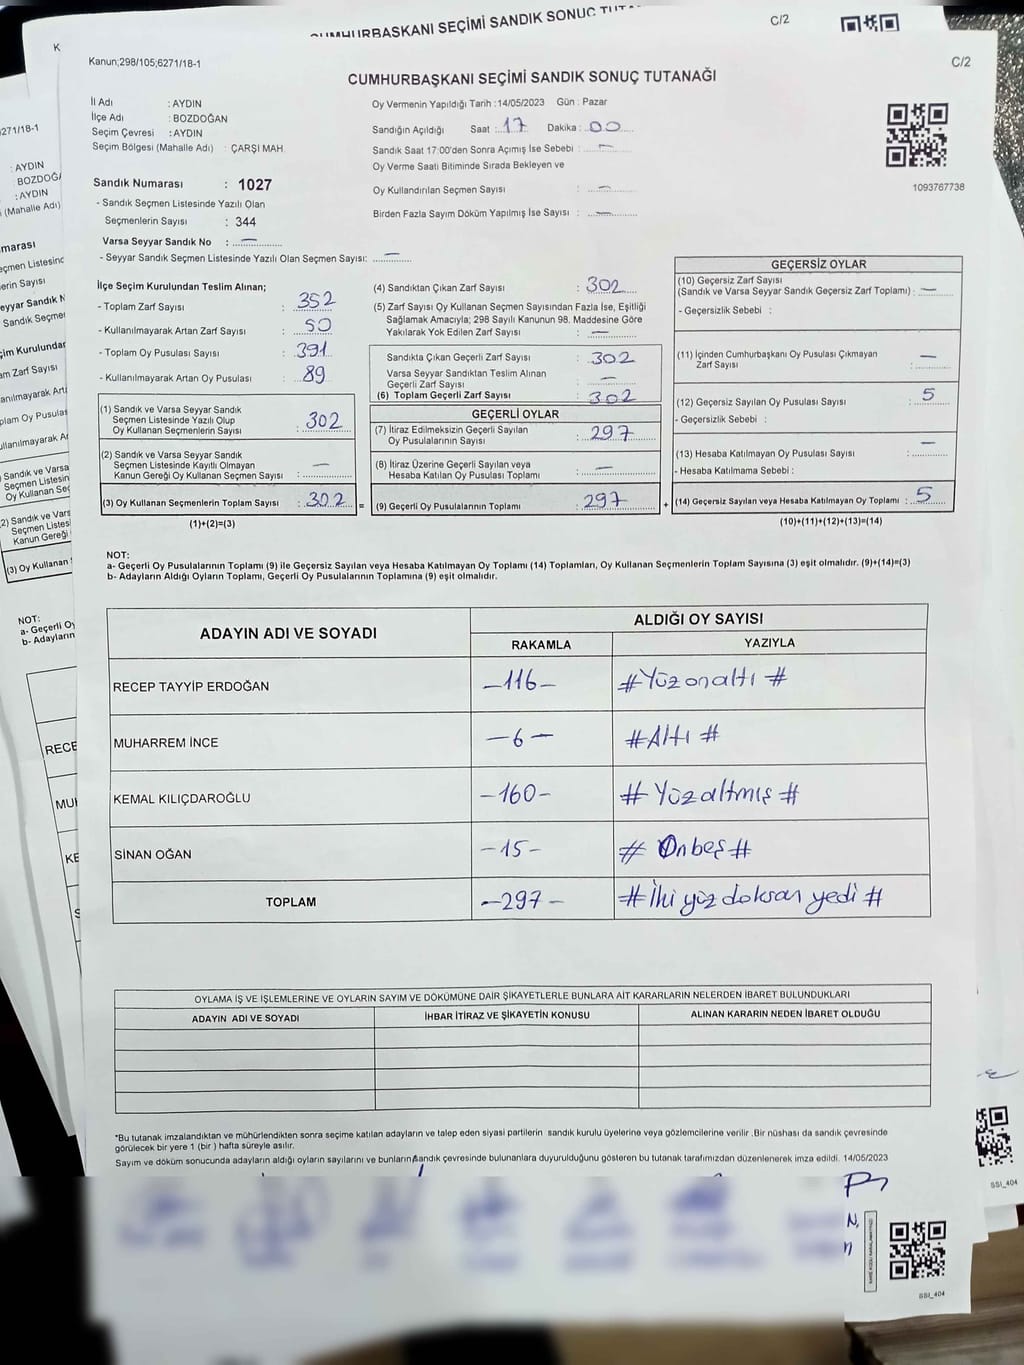 CUMHURBAŞKANI SEÇİMİ SANDIK SONUÇ
C/2
Kanun;298/105;6271/18-1
C/2
CUMHURBAŞKANI SEÇİMİ SANDIK SONUÇ TUTANAĞI
İl Adı : AYDIN
İlçe Adı : BOZDOĞAN
Seçim Çevresi : AYDIN
Seçim Bölgesi (Mahalle Adı) : ÇARŞI MAH.
Oy Vermenin Yapıldığı Tarih : 14/05/2023 Gün : Pazar
Sandığın Açıldığı Saat : 17 Dakika : 00
Sandık Saat 17:00'den Sonra Açımış İse Sebebi : —
Oy Verme Saati Bitiminde Sırada Bekleyen ve
Oy Kullandırılan Seçmen Sayısı : —
Birden Fazla Sayım Döküm Yapılmış İse Sayısı : —
1093767738
Sandık Numarası : 1027
- Sandık Seçmen Listesinde Yazılı Olan
Seçmenlerin Sayısı : 344
Varsa Seyyar Sandık No : —
- Seyyar Sandık Seçmen Listesinde Yazılı Olan Seçmen Sayısı: —
İlçe Seçim Kurulundan Teslim Alınan;
- Toplam Zarf Sayısı : 352
- Kullanılmayarak Artan Zarf Sayısı : 50
- Toplam Oy Pusulası Sayısı : 391
- Kullanılmayarak Artan Oy Pusulası : 89
(1) Sandık ve Varsa Seyyar Sandık
Seçmen Listesinde Yazılı Olup
Oy Kullanan Seçmenlerin Sayısı : 302
(2) Sandık ve Varsa Seyyar Sandık
Seçmen Listesinde Kayıtlı Olmayan
Kanun Gereği Oy Kullanan Seçmen Sayısı : —
(3) Oy Kullanan Seçmenlerin Toplam Sayısı : 302 =
(1)+(2)=(3)
(4) Sandıktan Çıkan Zarf Sayısı : 302
(5) Zarf Sayısı Oy Kullanan Seçmen Sayısından Fazla İse, Eşitliği
Sağlamak Amacıyla; 298 Sayılı Kanunun 98. Maddesine Göre
Yakılarak Yok Edilen Zarf Sayısı : —
Sandıkta Çıkan Geçerli Zarf Sayısı : 302
Varsa Seyyar Sandıktan Teslim Alınan
Geçerli Zarf Sayısı : —
(6) Toplam Geçerli Zarf Sayısı : 302
GEÇERLİ OYLAR
(7) İtiraz Edilmeksizin Geçerli Sayılan
Oy Pusulalarının Sayısı : 297
(8) İtiraz Üzerine Geçerli Sayılan veya
Hesaba Katılan Oy Pusulası Toplamı : —
(9) Geçerli Oy Pusulalarının Toplamı : 297 +
GEÇERSİZ OYLAR
(10) Geçersiz Zarf Sayısı
(Sandık ve Varsa Seyyar Sandık Geçersiz Zarf Toplamı) : —
- Geçersizlik Sebebi :
(11) İçinden Cumhurbaşkanı Oy Pusulası Çıkmayan
Zarf Sayısı : —
(12) Geçersiz Sayılan Oy Pusulası Sayısı : 5
- Geçersizlik Sebebi :
(13) Hesaba Katılmayan Oy Pusulası Sayısı : —
- Hesaba Katılmama Sebebi :
(14) Geçersiz Sayılan veya Hesaba Katılmayan Oy Toplamı : 5
(10)+(11)+(12)+(13)=(14)
NOT:
a- Geçerli Oy Pusulalarının Toplamı (9) ile Geçersiz Sayılan veya Hesaba Katılmayan Oy Toplamı (14) Toplamları, Oy Kullanan Seçmenlerin Toplam Sayısına (3) eşit olmalıdır. (9)+(14)=(3)
b- Adayların Aldığı Oyların Toplamı, Geçerli Oy Pusulalarının Toplamına (9) eşit olmalıdır.
ADAYIN ADI VE SOYADI
ALDIĞI OY SAYISI
RAKAMLA YAZIYLA
RECEP TAYYİP ERDOĞAN —116— #Yüzonaltı#
MUHARREM İNCE —6— #Altı#
KEMAL KILIÇDAROĞLU —160— #Yüzaltmış#
SİNAN OĞAN —15— #Onbeş#
TOPLAM —297— #İki yüz doksan yedi#
OYLAMA İŞ VE İŞLEMLERİNE VE OYLARIN SAYIM VE DÖKÜMÜNE DAİR ŞİKAYETLERLE BUNLARA AİT KARARLARIN NELERDEN İBARET BULUNDUKLARI
ADAYIN ADI VE SOYADI İHBAR İTİRAZ VE ŞİKAYETİN KONUSU ALINAN KARARIN NEDEN İBARET OLDUĞU
*Bu tutanak imzalandıktan ve mühürlendikten sonra seçime katılan adayların ve talep eden siyasi partilerin sandık kurulu üyelerine veya gözlemcilerine verilir .Bir nüshası da sandık çevresinde
görülecek bir yere 1 (bir ) hafta süreyle asılır.
Sayım ve döküm sonucunda adayların aldığı oyların sayılarını ve bunların sandık çevresinde bulunanlara duyurulduğunu gösteren bu tutanak tarafımızdan düzenlenerek imza edildi. 14/05/2023
SSI_404
SSI_404